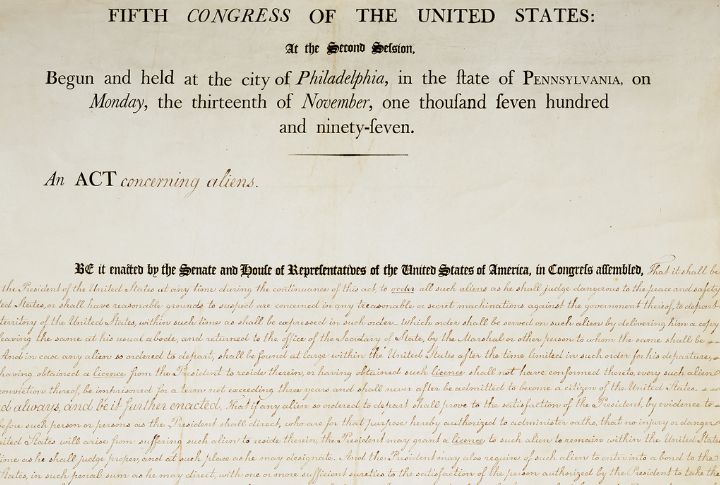 FIFTH CONGRESS OF THE UNITED STATES:
At the Second Seſsion,
Begun and held at the city of Philadelphia, in the ſtate of PENNSYLVANIA, on
Monday, the thirteenth of November, one thouſand ſeven hundred
and ninety-ſeven.
An ACT concerning aliens.
BE it enacted by the Senate and Houſe of Repreſentatives of the United States of America, in Congreſs aſsembled, That it shall be
the President of the United States at any time during the continuance of this act to order all such aliens as he shall judge dangerous to the peace and safety
ted States, or shall have reasonable grounds to suspect are concerned in any treasonable or secret machinations against the government thereof, to depart
territory of the United States, within such time as shall be expressed in such order. which order shall be served on such alien by delivering him a copy
leaving the same at his usual abode, and returned to the office of the Secretary of State, by the Marshal or other person to whom the same shall be
And in case any alien so ordered to depart, shall be found at large within the United States after the time limited in such order for his departure,
having obtained a licence from the President to reside therein, or having obtained such licence shall not have conformed thereto, every such alien
conviction thereof, be imprisoned for a term not exceeding three years and shall never after be admitted to become a citizen of the United States.
d always, and be it further enacted, That if any alien so ordered to depart shall prove to the satisfaction of the President, by evidence to
before such person or persons as the President shall direct, who are for that purpose hereby authorized to administer oaths, that no injury or danger
nited States will arise from suffering such alien to reside therein, the President may grant a licence to such alien to remain within the United States
time as he shall judge proper, and at such place as he may designate. And the President may also require of such alien to enter into a bond to the
States, in such penal sum as he may direct, with one or more sufficient sureties to the satisfaction of the person authorized by the President to take the